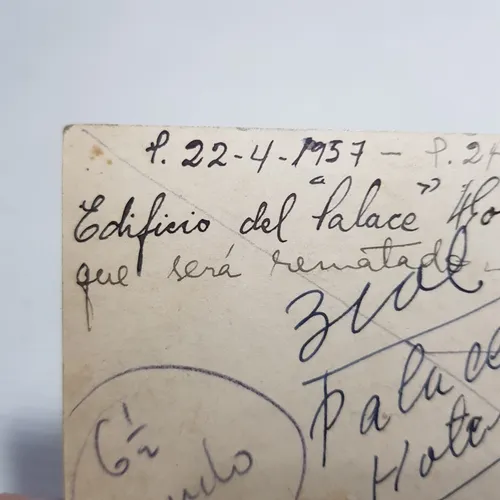 P. 22-4-1937 - P. 24
Edificio del "Palace" Ho
que será rematado -
3 col
Palace
Hote
6 1/2